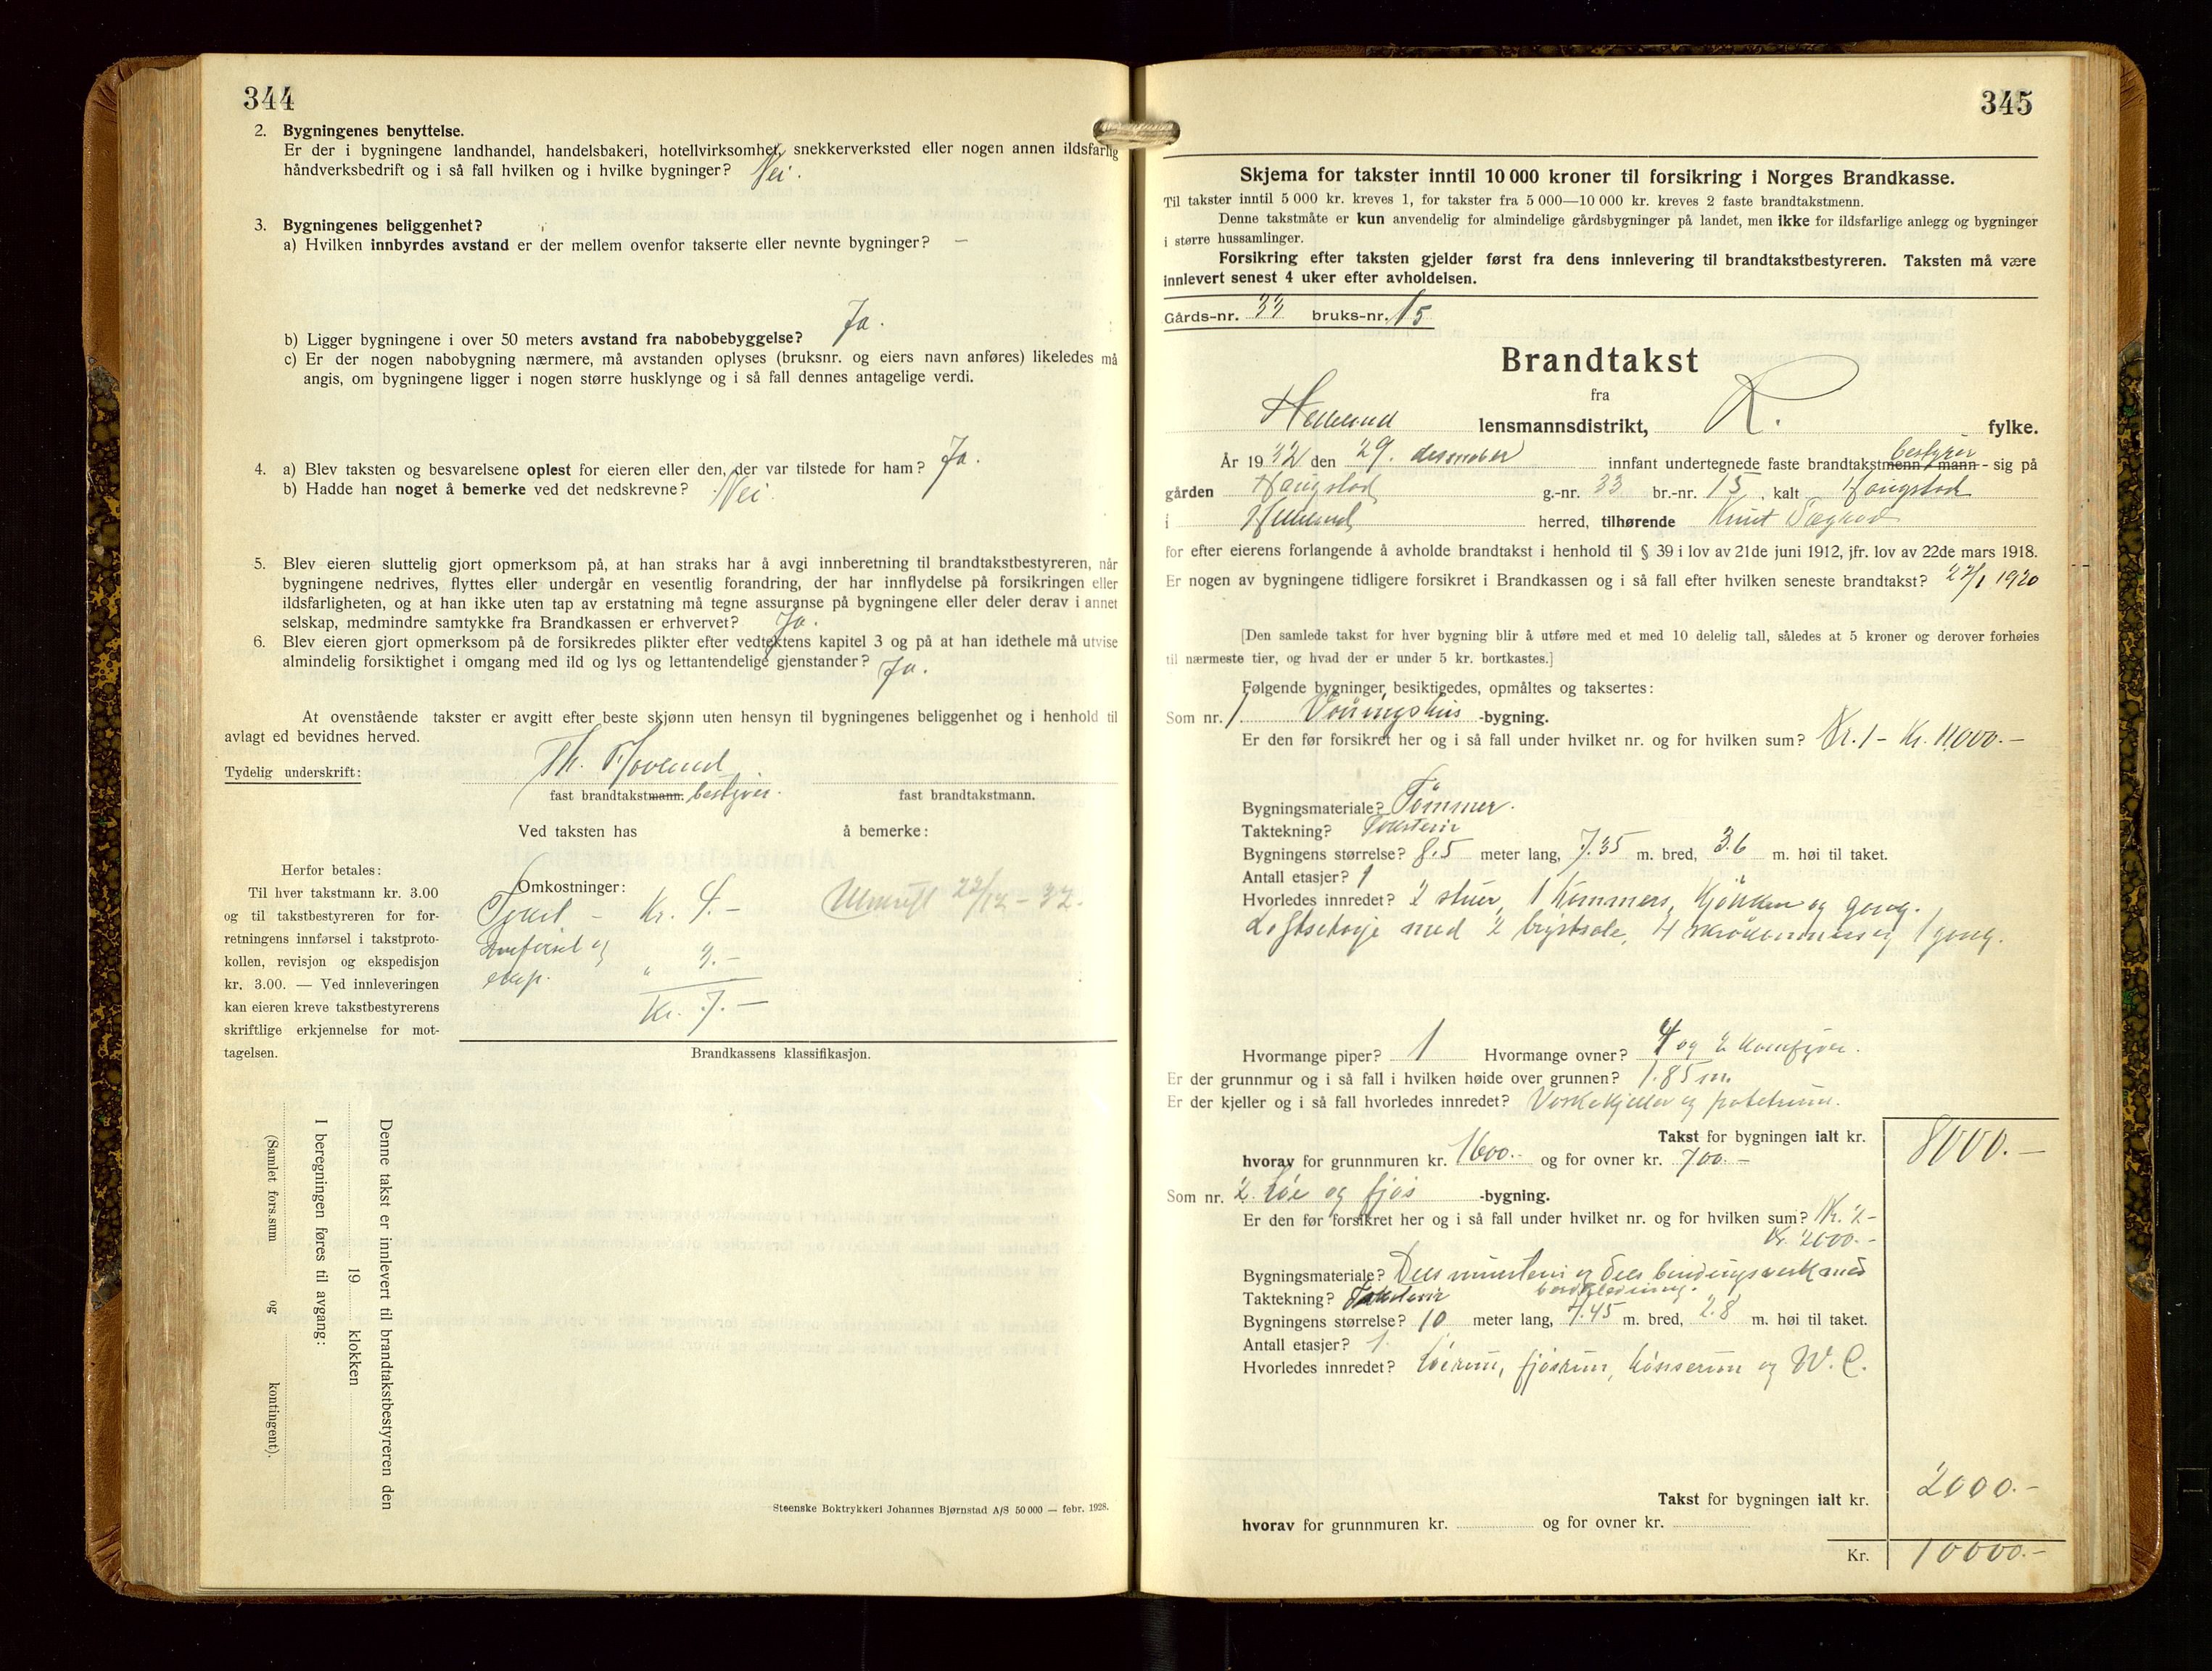 344
2. Bygningenes benyttelse.
Er der i bygningene landhandel, handelsbakeri, hotellvirksomhet, snekkerverksted eller nogen annen ildsfarlig
håndverksbedrift og i så fall hvilken og i hvilke bygninger? Nei.
3. Bygningenes beliggenhet?
a) Hvilken innbyrdes avstand er der mellem ovenfor takserte eller nevnte bygninger? —
b) Ligger bygningene i over 50 meters avstand fra nabobebyggelse? Ja.
c) Er der nogen nabobygning nærmere, må avstanden oplyses (bruksnr. og eiers navn anføres) likeledes må
angis, om bygningene ligger i nogen større husklynge og i så fall dennes antagelige verdi.
4. a) Blev taksten og besvarelsene oplest for eieren eller den, der var tilstede for ham? Ja.
b) Hadde han noget å bemerke ved det nedskrevne? Nei.
5. Blev eieren sluttelig gjort opmerksom på, at han straks har å avgi innberetning til brandtakstbestyreren, når
bygningene nedrives, flyttes eller undergår en vesentlig forandring, der har innflydelse på forsikringen eller
ildsfarligheten, og at han ikke uten tap av erstatning må tegne assuranse på bygningene eller deler derav i annet
selskap, medmindre samtykke fra Brandkassen er erhvervet? Ja.
6. Blev eieren gjort opmerksom på de forsikredes plikter efter vedtektens kapitel 3 og på at han idethele må utvise
almindelig forsiktighet i omgang med ild og lys og lettantendelige gjenstander? Ja.
At ovenstående takster er avgitt efter beste skjønn uten hensyn til bygningenes beliggenhet og i henhold til
avlagt ed bevidnes herved.
Tydelig underskrift: Th.
fast brandtakstmann. bestyrer. fast brandtakstmann.
Ved taksten has å bemerke:
Herfor betales:
Til hver takstmann kr. 3.00
og til takstbestyreren for for-
retningens innførsel i takstproto-
kollen, revisjon og ekspedisjon
kr. 3.00. — Ved innleveringen
kan eieren kreve takstbestyrerens
skriftlige erkjennelse for mot-
tagelsen.
Omkostninger:
Takst – Kr. 4.–
Innførsel og
eksp. " 3.–
Kr. 7.–
Utskrift 22/12 – 32.
Brandkassens klassifikasjon.
Denne takst er innlevert til brandtakstbestyreren den
19 klokken
I beregningen føres til avgang:
(Samlet fors.sum og kontingent).
Steenske Boktrykkeri Johannes Bjørnstad A/S 50 000 — febr. 1928.
345
Skjema for takster inntil 10 000 kroner til forsikring i Norges Brandkasse.
Til takster inntil 5 000 kr. kreves 1, for takster fra 5 000—10 000 kr. kreves 2 faste brandtakstmenn.
Denne takstmåte er kun anvendelig for almindelige gårdsbygninger på landet, men ikke for ildsfarlige anlegg og bygninger
i større hussamlinger.
Forsikring efter taksten gjelder først fra dens innlevering til brandtakstbestyreren. Taksten må være
innlevert senest 4 uker efter avholdelsen.
Gårds-nr. 33 bruks-nr. 15
Brandtakst
fra
Helleland lensmannsdistrikt, R. fylke.
År 1932 den 29. desember innfant undertegnede faste brandtakstmenn/mann bestyrer - sig på
gården Haugstad g.-nr. 33 br.-nr. 15, kalt Haugstad
i Helleland herred, tilhørende Knut
for efter eierens forlangende å avholde brandtakst i henhold til § 39 i lov av 21de juni 1912, jfr. lov av 22de mars 1918.
Er nogen av bygningene tidligere forsikret i Brandkassen og i så fall efter hvilken seneste brandtakst? 27/1 1920
[Den samlede takst for hver bygning blir å utføre med et med 10 delelig tall, således at 5 kroner og derover forhøies
til nærmeste tier, og hvad der er under 5 kr. bortkastes.]
Følgende bygninger besiktigedes, opmåltes og taksertes:
Som nr. 1 Våningshus -bygning.
Er den før forsikret her og i så fall under hvilket nr. og for hvilken sum? Nr. 1 – Kr. 11,000.–
Bygningsmateriale? Tømmer.
Taktekning? Takstein
Bygningens størrelse? 8.5 meter lang, 7.35 m. bred, 3.6 m. høi til taket.
Antall etasjer? 1
Hvorledes innredet? 2 stuer, 1 kammers, kjøkken og gang.
Loftsetasje med 2 kvistsale, 4 og 1 gang.
Hvormange piper? 1 Hvormange ovner? 4 og 2 komfyrer.
Er der grunnmur og i så fall i hvilken høide over grunnen? 1.85 m.
Er der kjeller og i så fall hvorledes innredet? Vaskekjeller og potetrum.
Takst for bygningen ialt kr. 8000.–
hvorav for grunnmuren kr. 1600.– og for ovner kr. 700.–
Som nr. 2. Løe og fjøs -bygning.
Er den før forsikret her og i så fall under hvilket nr. og for hvilken sum? Nr. 2 –
Kr. 2000.–
Bygningsmateriale? Dels murstein og dels bindingsverk med
bordkledning.
Taktekning? Takstein
Bygningens størrelse? 10 meter lang, 7.45 m. bred, 2.8 m. høi til taket.
Antall etasjer? 1.
Hvorledes innredet? Løerum, fjøsrum, hønserum og W. C.
Takst for bygningen ialt kr. 2000.–
hvorav for grunnmuren kr. og for ovner kr.
Kr. 10000.–